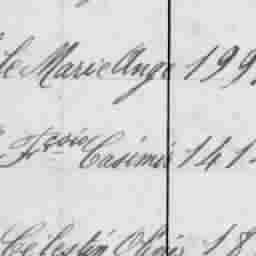 le Marie Ange 199
Fçois Casimir 141
Célestin Olivier 18